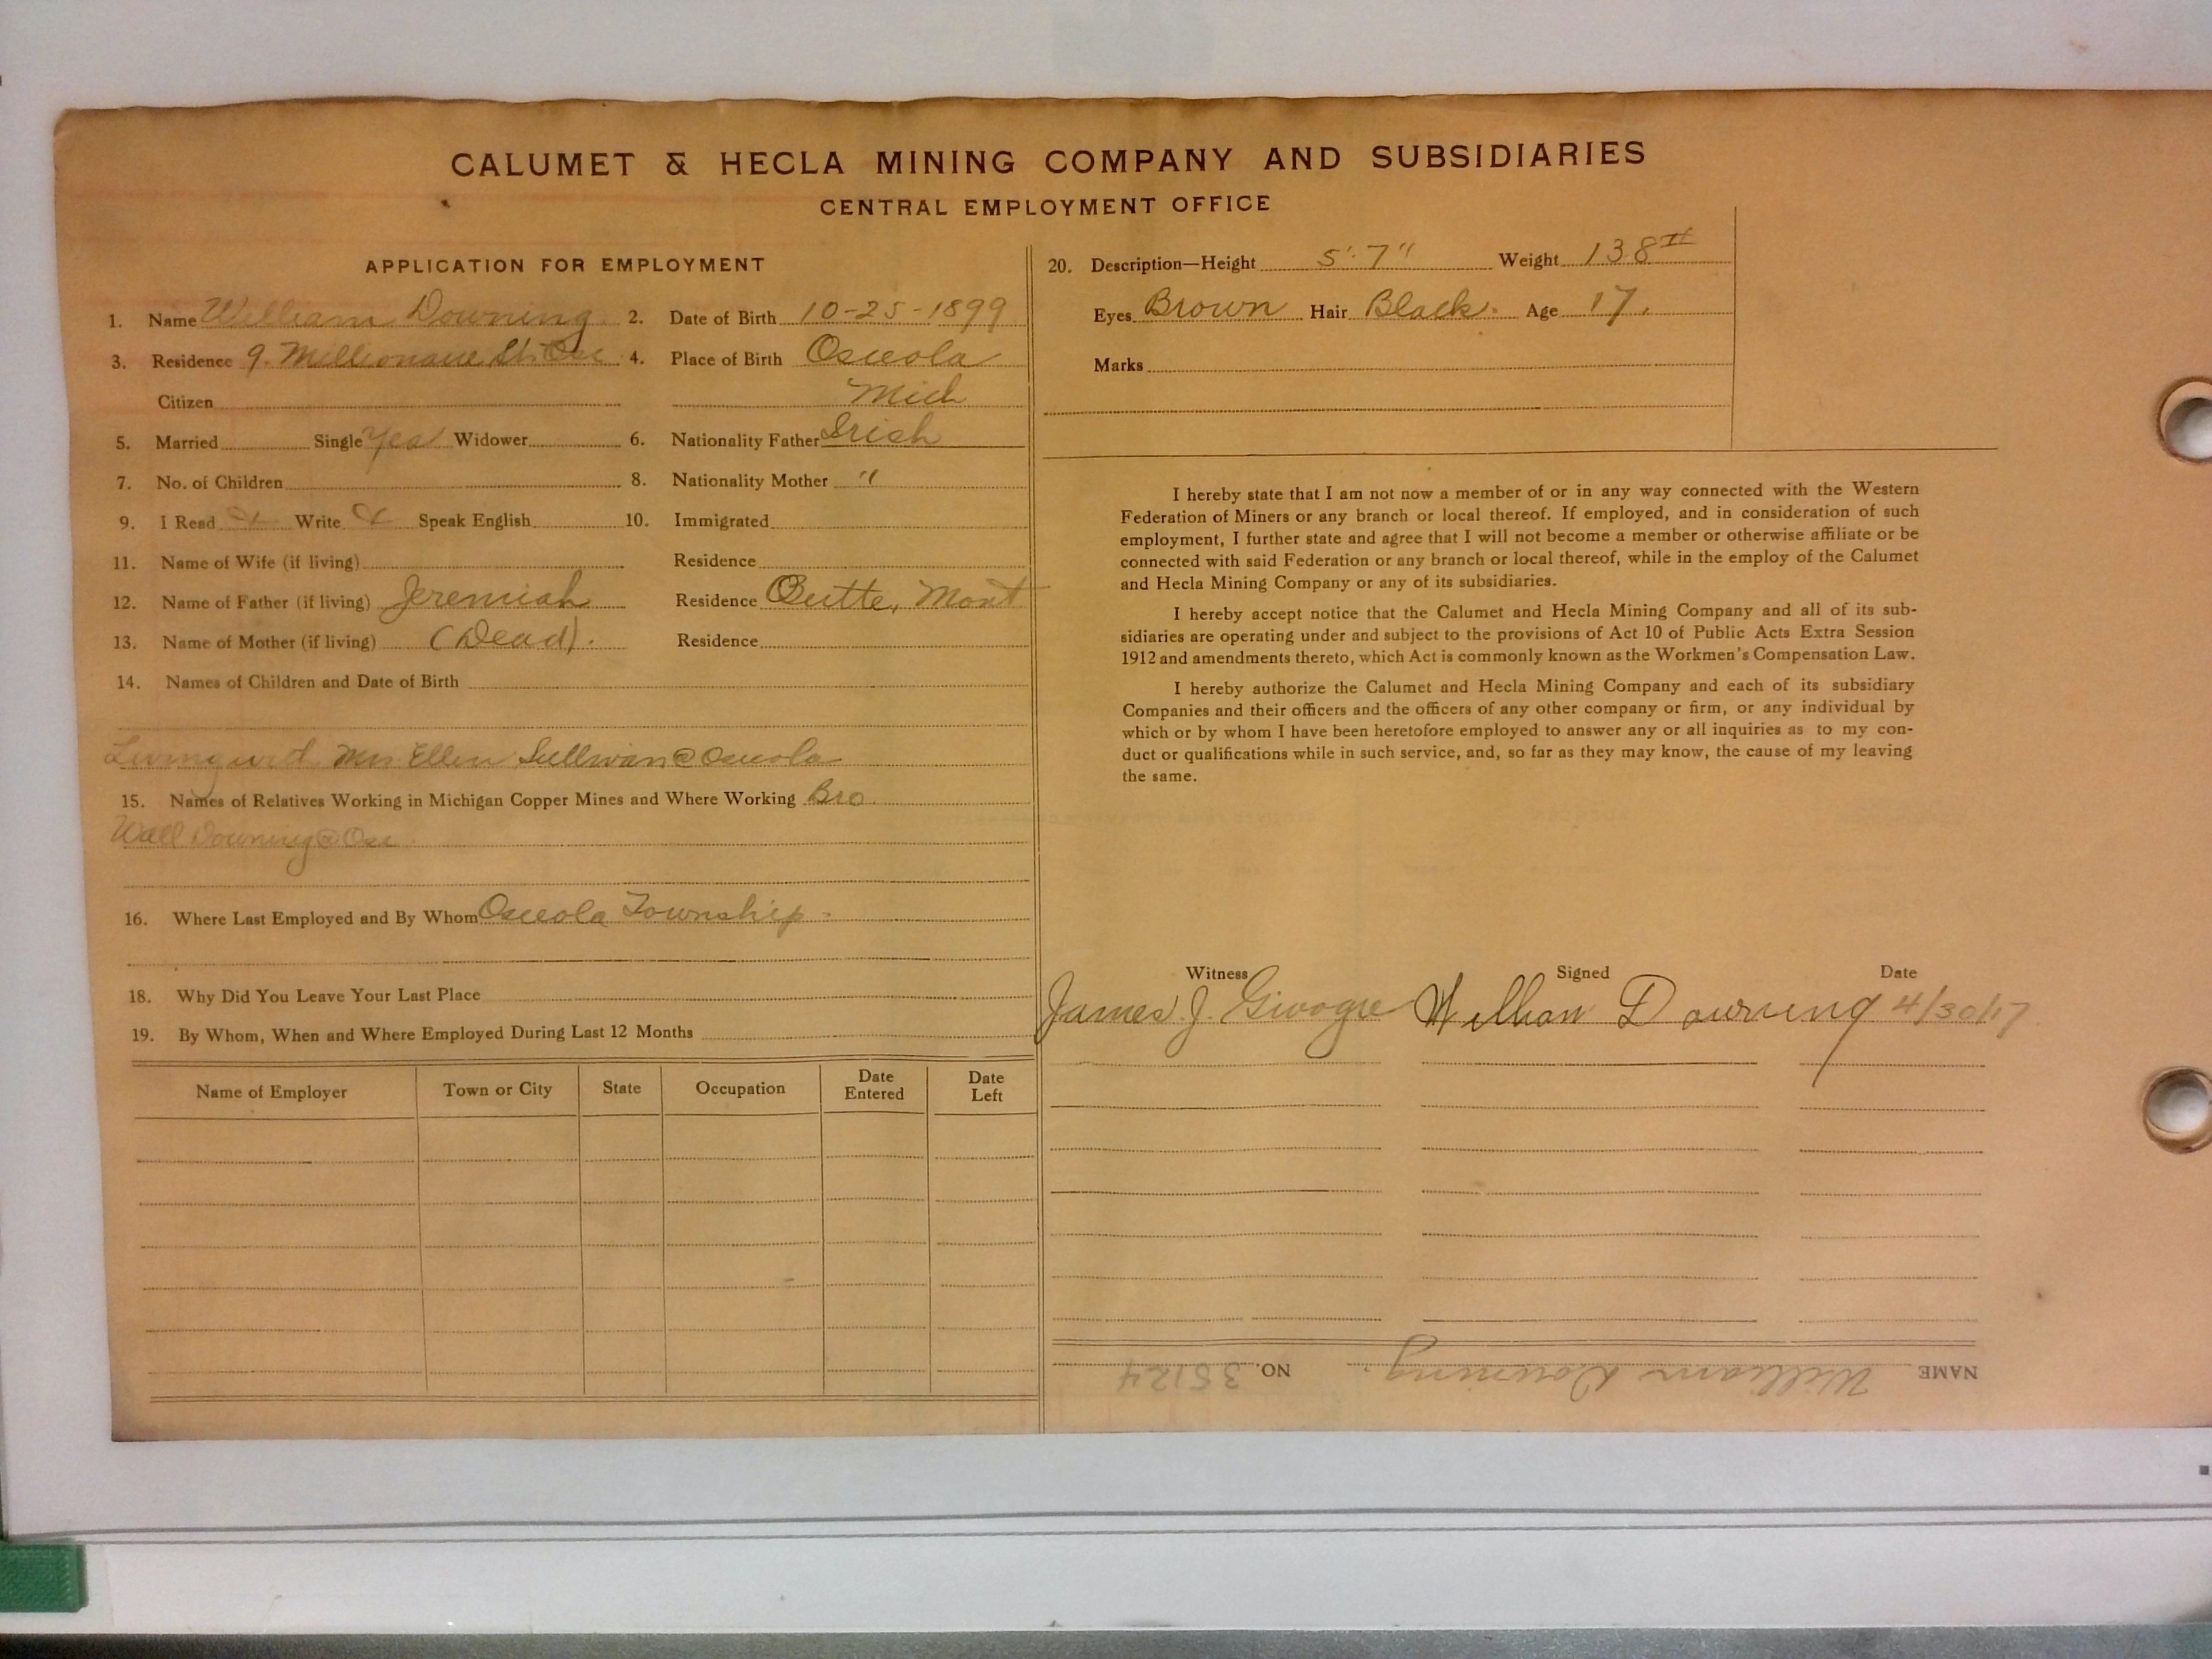 CALUMET & HECLA MINING COMPANY AND SUBSIDIARIES
CENTRAL EMPLOYMENT OFFICE
APPLICATION FOR EMPLOYMENT
1. Name William Downing 2. Date of Birth 10-25-1899
3. Residence 9. Millionaire St. Osc 4. Place of Birth Osceola
Citizen Mich
5. Married Single Yes Widower 6. Nationality Father Irish
7. No. of Children 8. Nationality Mother "
9. I Read Write Speak English 10. Immigrated
11. Name of Wife (if living) Residence
12. Name of Father (if living) Jeremiah Residence Butte, Mont
13. Name of Mother (if living) (Dead). Residence
14. Names of Children and Date of Birth
Mrs Ellen Sullivan @ Osceola
15. Names of Relatives Working in Michigan Copper Mines and Where Working Bro.
Downing @ Osc
16. Where Last Employed and By Whom Osceola Township.
18. Why Did You Leave Your Last Place
19. By Whom, When and Where Employed During Last 12 Months
Name of Employer Town or City State Occupation Date Entered Date Left
20. Description—Height 5' 7" Weight 138#
Eyes Brown Hair Black. Age 17.
Marks
I hereby state that I am not now a member of or in any way connected with the Western
Federation of Miners or any branch or local thereof. If employed, and in consideration of such
employment, I further state and agree that I will not become a member or otherwise affiliate or be
connected with said Federation or any branch or local thereof, while in the employ of the Calumet
and Hecla Mining Company or any of its subsidiaries.
I hereby accept notice that the Calumet and Hecla Mining Company and all of its sub-
sidiaries are operating under and subject to the provisions of Act 10 of Public Acts Extra Session
1912 and amendments thereto, which Act is commonly known as the Workmen's Compensation Law.
I hereby authorize the Calumet and Hecla Mining Company and each of its subsidiary
Companies and their officers and the officers of any other company or firm, or any individual by
which or by whom I have been heretofore employed to answer any or all inquiries as to my con-
duct or qualifications while in such service, and, so far as they may know, the cause of my leaving
the same.
Witness Signed Date
James J. William Downing 4/30/17
NAME William Downing. NO. 35124